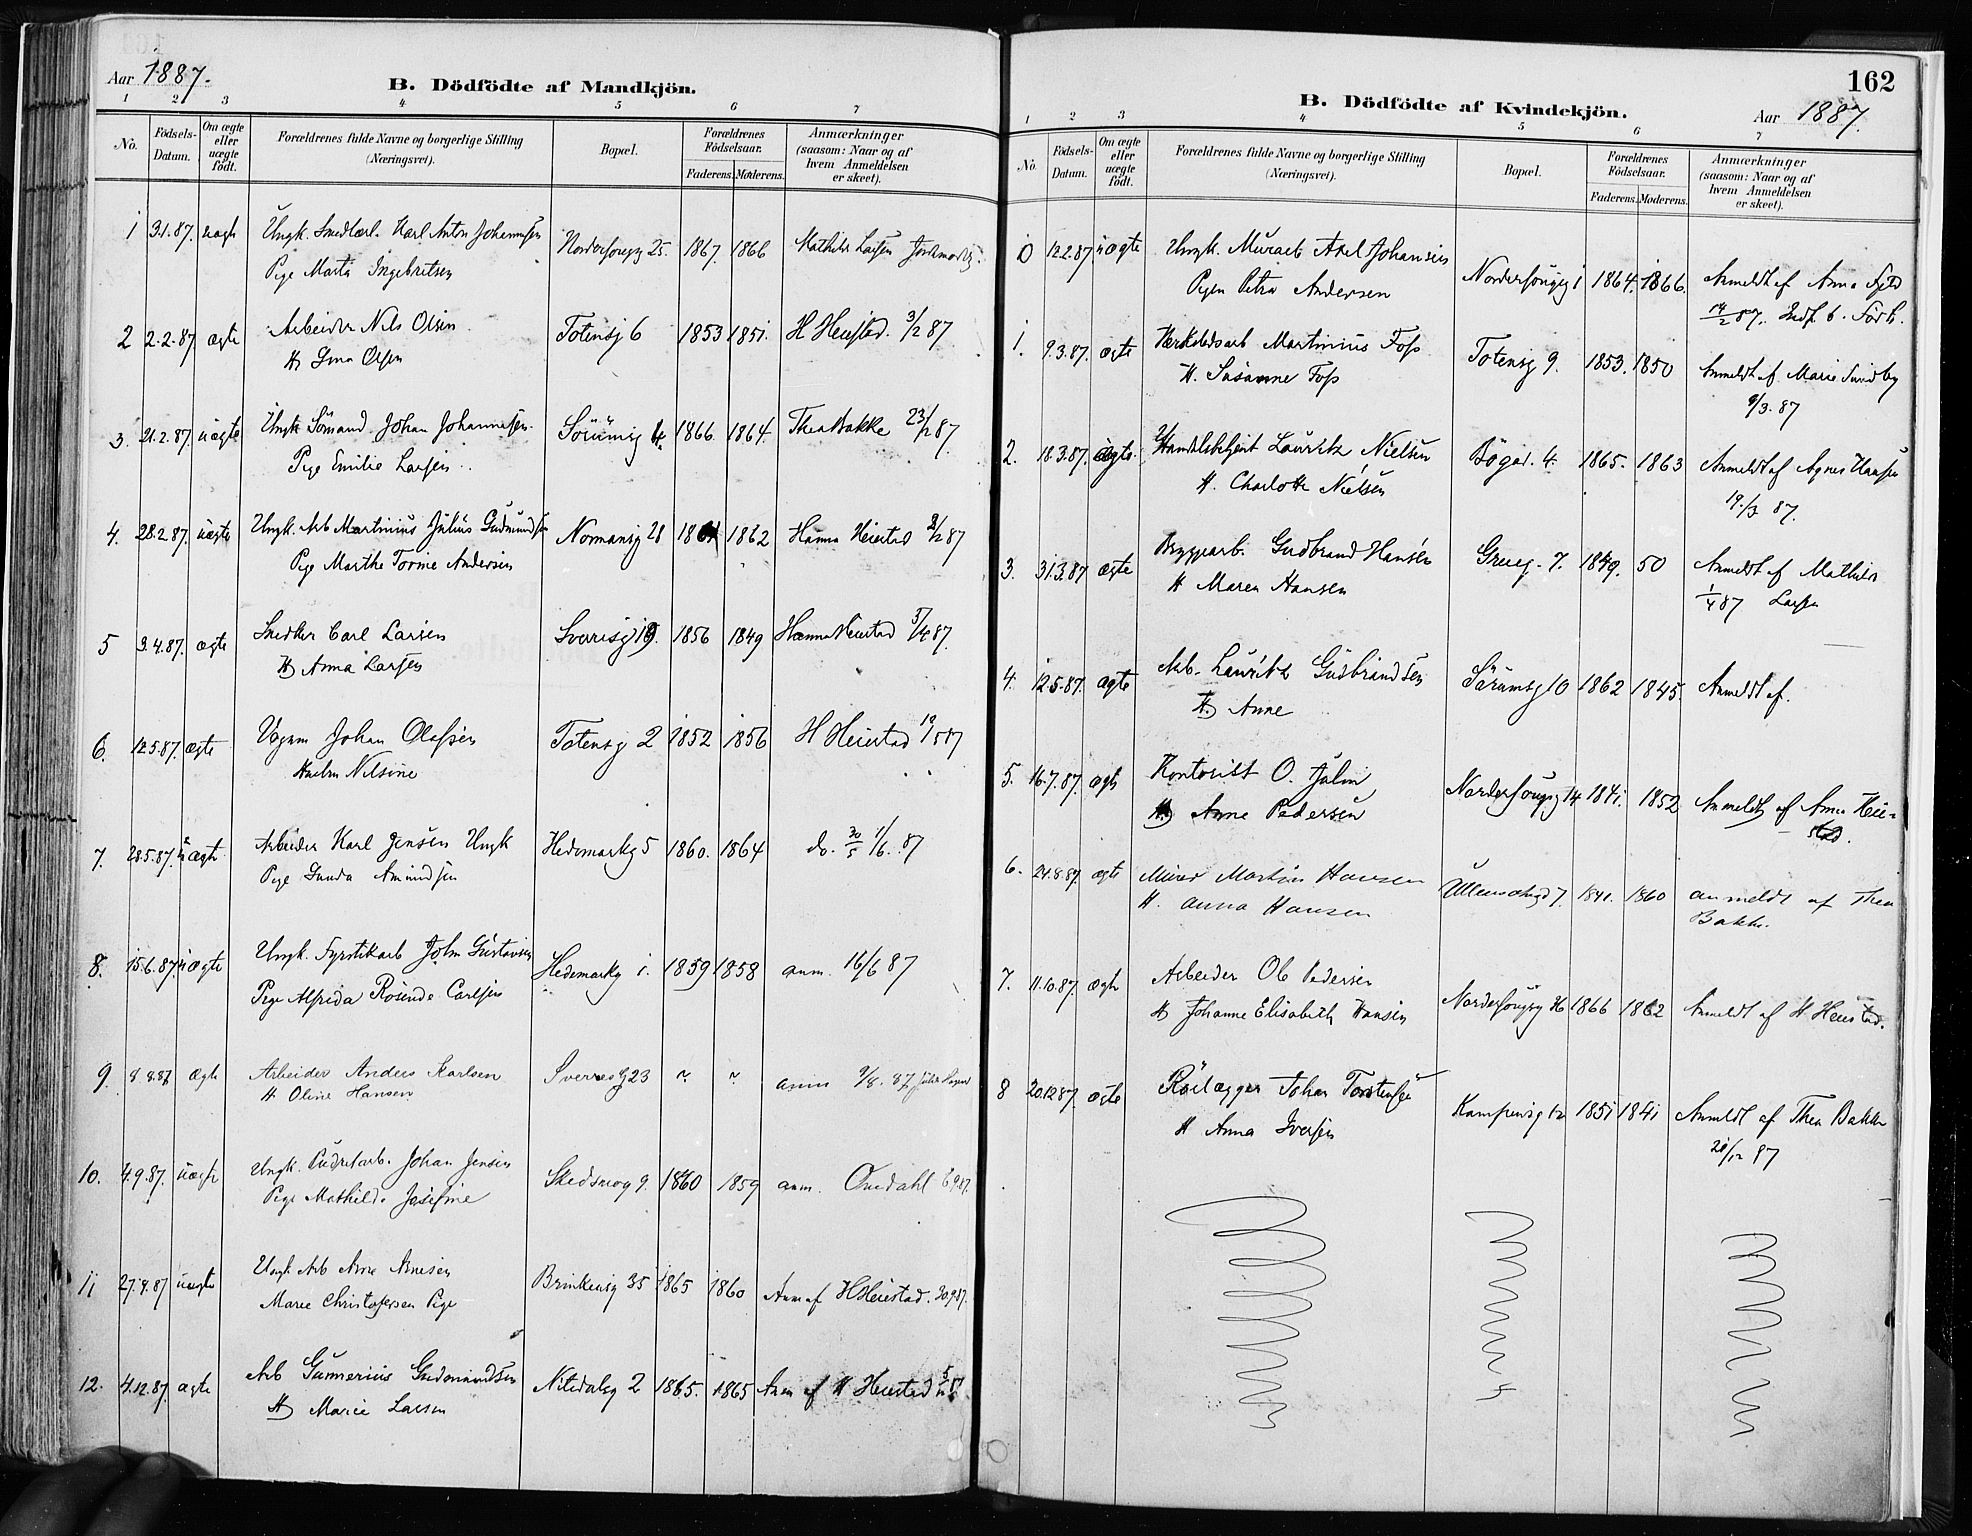 Aar 1887.
B. Dödfödte af Mandkjön.
1 2 3 4 5 6 7
No. Födsels-Datum. Om ægte eller uægte födt. Forældrenes fulde Navne og borgerlige Stilling (Næringsvei). Bopæl. Forældrenes Födselsaar. Faderens. Moderens. Anmærkninger (saasom: Naar og af hvem Anmeldelsen er skeet).
1 31.87. uægte Ungk. Karl Anton Johannesen 25. 1867. 1866 Mathilde Larsen
Pige Marta Ingebritsen
2 2.2.87 ægte Arbeider Nils Olsen Totensg 6 1853 1851. H Heiestad. 3/2 87
H Olsen
3. 21.2.87. uægte Ungk Sömand Johan Johannesen Sörumsg 1866. 1864. Thea Bakke 23/2 87.
Pige Emilie Larsen
4. 28.2.87. uægte Ungk. Arb Martinius Julius Normansg 28 1862 Hanna Heiestad 87
Pige Marthe Andersen
5 3.4.87. ægte Snedker Carl Larsen Sverresg 19. 1856 1849 Hanna Heiestad 87.
H Anna Larsen
6. 12.5.87. ægte Johan Olafsen Totensg 2 1852 1856 H Heiestad
Nilsine
7. 28.5.87. uægte Arbeider Karl Jensen Ungk Hedemarkg 5 1860. 1864 do. 30/5 1/6. 87
Pige Gunda Amundsen
8. 15.6.87. uægte Ungk. Fyrstikarb John Gustavsen Hedemarkg 1. 1859 1858 anm. 16/6 87
Pige Alfrida Carlsen
9. 8 8.87 ægte Arbeider Anders Karlsen Sverresg 23 ~ ~ anm 9/8. 87
H Oline Hansen
10. 4.9.87. uægte Ungk. Johan Jensen Skedsmog 9. 1860 1859 anm. 6.9.87.
Pige Mathilde Josefine
11 27.9.87 uægte Ungk Arb Arne Arnesen Brinkensg 35 1865 1860 Anm af H Heiestad. 30.9.87.
Marie Christofersen Pige
12. 4.12.87. ægte Arb Gunnerius Gudmundsen Nitedalsg 2 1865. 1865 Anm af H Heiestad
H Marie Larsen
162
B. Dödfödte af Kvindekjön.
Aar 1887.
1 2 3 4 5 6 7
No. Födsels-Datum. Om ægte eller uægte födt. Forældrenes fulde Navne og borgerlige Stilling (Næringsvei). Bopæl. Forældrenes Födselsaar. Faderens. Moderens. Anmærkninger (saasom: Naar og af hvem Anmeldelsen er skeet).
0 12.2.87 uægte Ungk. Murarb Axel Johansen 1864. 1866. Anmeldt af Anna
Pigen Petra Andersen 14/2 87.
1. 9.3.87. ægte Martinius Foss Totensg 9. 1853. 1850 Anmeldt af Marie Sundby
H. Susanne Foss 9/3. 87
2. 18.3.87. ægte. Handelsbetjent Lauritz Nielsen Bögad. 4. 1865. 1863 Anmeldt af Agnes Hansen
H. Charlotte Nielsen 19./3 87.
3. 31.3.87 ægte Bryggarb. Gudbrand Hansen Grueg. 7. 1849. 50 Anmeldt af Mathilde
H Maren Hansen 1/4 87 Larsen
4. 12.5.87. ægte Arb. Lauritz Gudbrandsen Sörumsg 10 1862 1845 Anmeldt af.
H. Anne
5. 16.7.87. ægte Kontorist O. Julin 14 1841. 1852 Anmeldt af Anna Heie-
H Anne Pedersen stad.
6. 24.8.87. ægte Murer Martin Hansen 7. 1841. 1860 anmeldt af Thea
H. Anna Hansen Bakke.
7. 11.10.87. ægte Arbeider Ole Pedersen 1866 1862 Anmeldt af H Heiestad.
H Johanne Elisabeth Hansen
8 20.12.87. ægte Rörlægger Johan Torstensen Kampensg 12 1851 1841 Anmeldt af Thea Bakke
H Anna Iversen 20/12 87